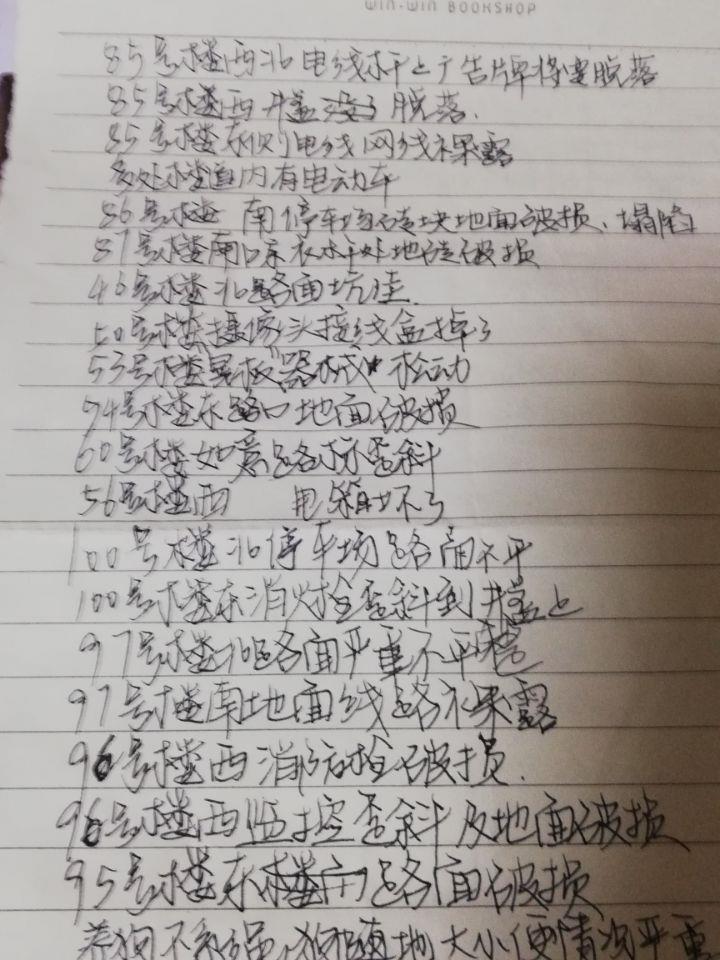 WIN-WIN BOOKSHOP
85号楼西北电线杆上广告牌将要脱落
85号楼西井盖没了脱落.
85号楼东侧电线网线裸露
多处楼道内有电动车
86号楼 南停车场砖块地面破损、塌陷
87号楼南 地砖破损
46号楼北路面坑洼.
50号楼摄像头接线盒掉了
53号楼 器械松动
54号楼东路口地面破损
60号楼如意路标歪斜
56号楼西 电箱坏了
100号楼北停车场路面不平
100号楼东消火栓歪斜到井盖上
97号楼北路面严重不平整
97号楼南地面线路裸露
96号楼西消防栓破损.
96号楼西监控歪斜及地面破损
95号楼东 路面破损
养狗不 ,狗随地大小便情况严重